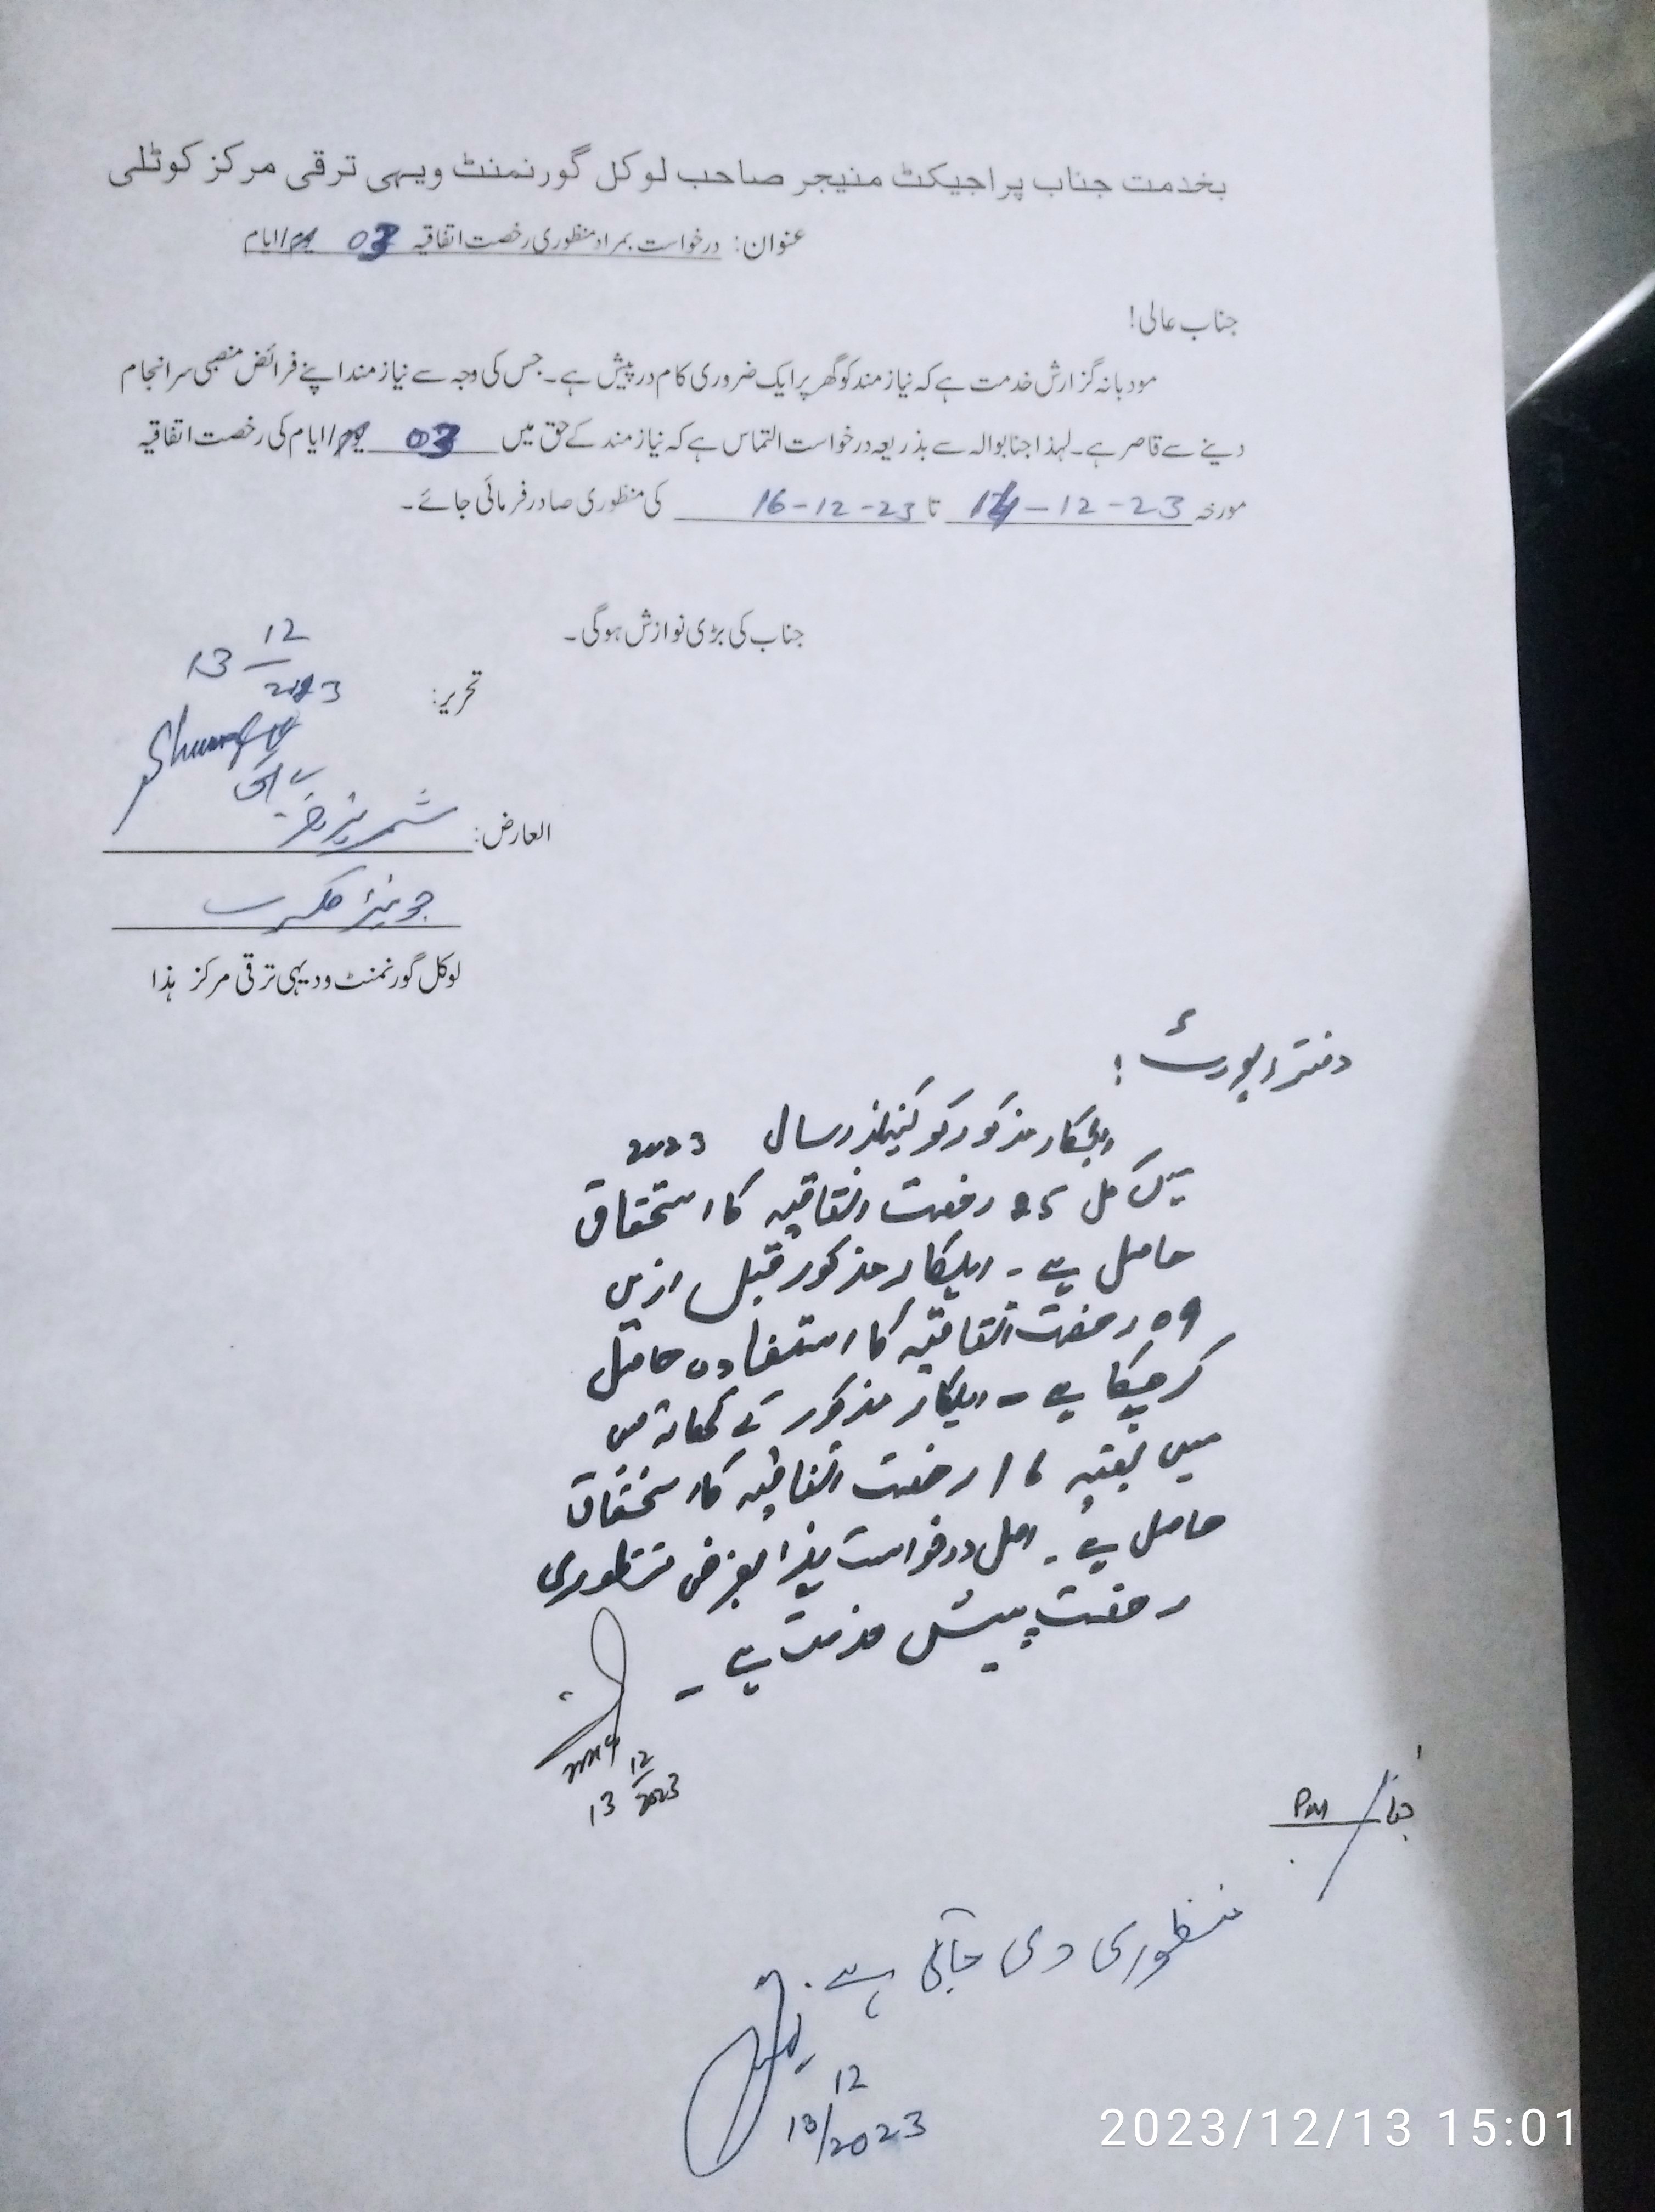 بخدمت جناب پراجیکٹ منیجر صاحب لوکل گورنمنٹ ویہی ترقی مرکز کوٹلی
عنوان: درخواست بمراد منظوری رخصت اتفاقیہ 03 یوم/ایام
جناب عالی!
مودبانہ گزارش خدمت ہے کہ نیاز مند کو گھر پر ایک ضروری کام درپیش ہے۔ جس کی وجہ سے نیاز مند اپنے فرائض منصبی سرانجام
دینے سے قاصر ہے۔ لہذا جنابوالہ سے بذریعہ درخواست التماس ہے کہ نیاز مند کے حق میں 03 یوم/ایام کی رخصت اتفاقیہ
مورخہ 14-12-23 تا 16-12-23 کی منظوری صادر فرمائی جائے۔
جناب کی بڑی نوازش ہوگی۔
تحریر: 13 12/2023
العارض: شمریز
جونیئر کلرک
لوکل گورنمنٹ ودیہی ترقی مرکز ہذا
دفتر رپورٹ:
اہلکار مذکور کو کیلنڈر سال 2023
میں کل 25 رخصت اتفاقیہ کا استحقاق
حاصل ہے۔ اہلکار مذکور قبل ازیں
09 رخصت اتفاقیہ کا استفادہ حاصل
کر چکا ہے۔ اہلکار مذکور کے کھاتہ میں
میں بقیہ رخصت اتفاقیہ کا استحقاق
حاصل ہے۔ اصل درخواست ہذا بغرض منظوری
رخصت پیش خدمت ہے۔
13 12/2023
جناب PM
منظوری دی جاتی ہے۔
12
13/2023
2023/12/13 15:01